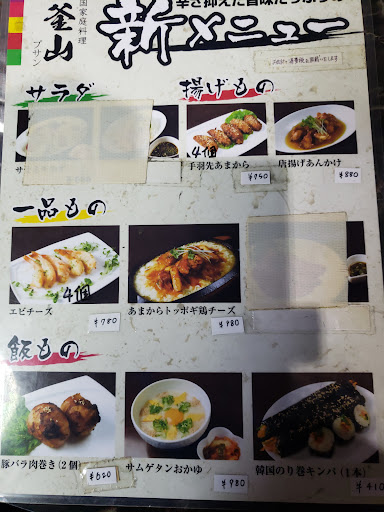 国家庭料理
釜山
プサン
辛さ抑えた旨味たっぷりな
新メニュー
サラダ
揚げもの
4個
手羽先あまから
¥750
唐揚げあんかけ
¥880
一品もの
4個
エビチーズ
¥780
あまからトッポギ鶏チーズ
¥980
飯もの
豚バラ肉巻き(2個)
サムゲタンおかゆ
¥980
韓国のり巻キンパ(1本)
¥410